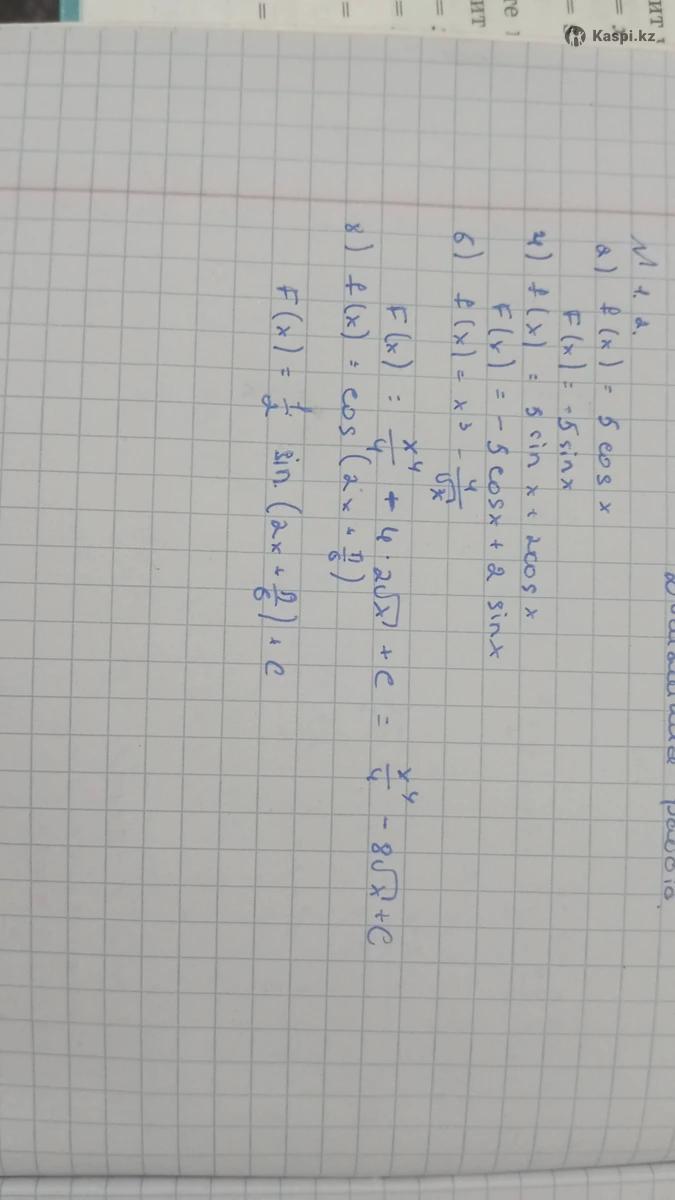 Kaspi.kz
№ 1.2.
а) f(x) = 5 cos x
F(x) = -5 sin x
ч) f(x) = 5 sin x + 2cos x
F(x) = - 5 cos x + 2 sin x
б) f(x) = x³ - 4/√x
F(x) = x⁴/4 + 4 · 2√x + C = x⁴/4 - 8√x + C
г) f(x) = cos (2x + π/6)
F(x) = 1/2 sin (2x + π/6) + C